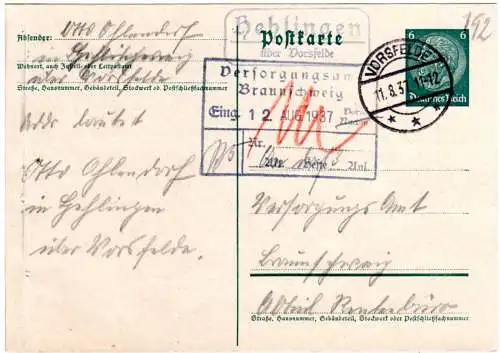 Absender: Otto Ohlendorf
in Hehlingen
Wohnort, auch Zustell- oder Leitpostamt
über Vorsfelde
Straße, Hausnummer, Gebäudeteil, Stockwerk od. Postschließfachnummer
Hehlingen
über Vorsfelde
Postkarte
6 6
Deutsches Reich
192
VORSFELDE
11.8.37
Versorgungsamt
Braunschweig
Eing. 12. AUG 1937
Nr.
Akt. Hefte Anl.
Adr lautet
Otto Ohlendorf
in Hehlingen
über Vorsfelde.
Versorgungs Amt
Braunschweig
Abteil Rentenbüro
Straße, Hausnummer, Gebäudeteil, Stockwerk oder Postschließfachnummer